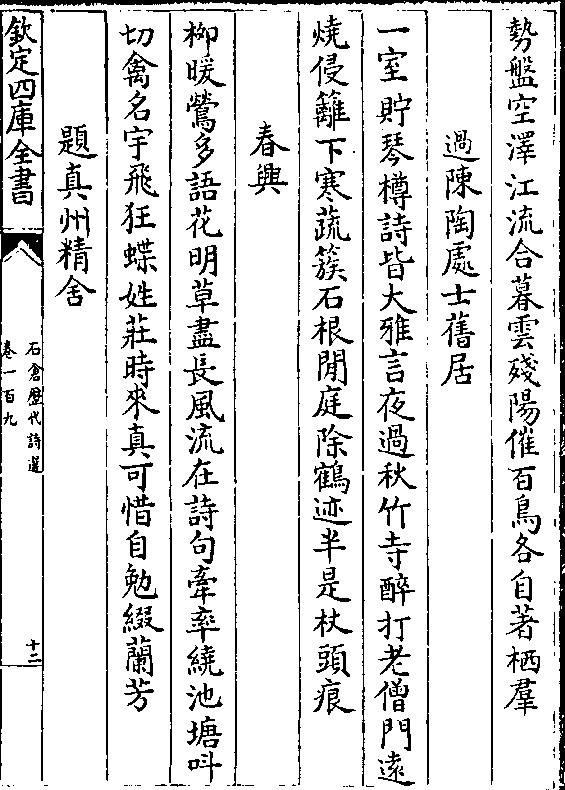 勢盤空澤江流合暮雲殘陽催百鳥各自著栖羣
過陳陶處士舊居
一室貯琴樽詩皆大雅言夜過秋竹寺醉打老僧門遠
燒侵籬下寒蔬簇石根閒庭除鶴迹半是杖頭痕
春興
柳暖鶯多語花明草盡長風流在詩句牽率繞池塘叫
切禽名宇飛狂蝶姓莊時來真可惜自勉綴蘭芳
題真州精舍
欽定四庫全書
石倉歷代詩選
卷一百九
十二